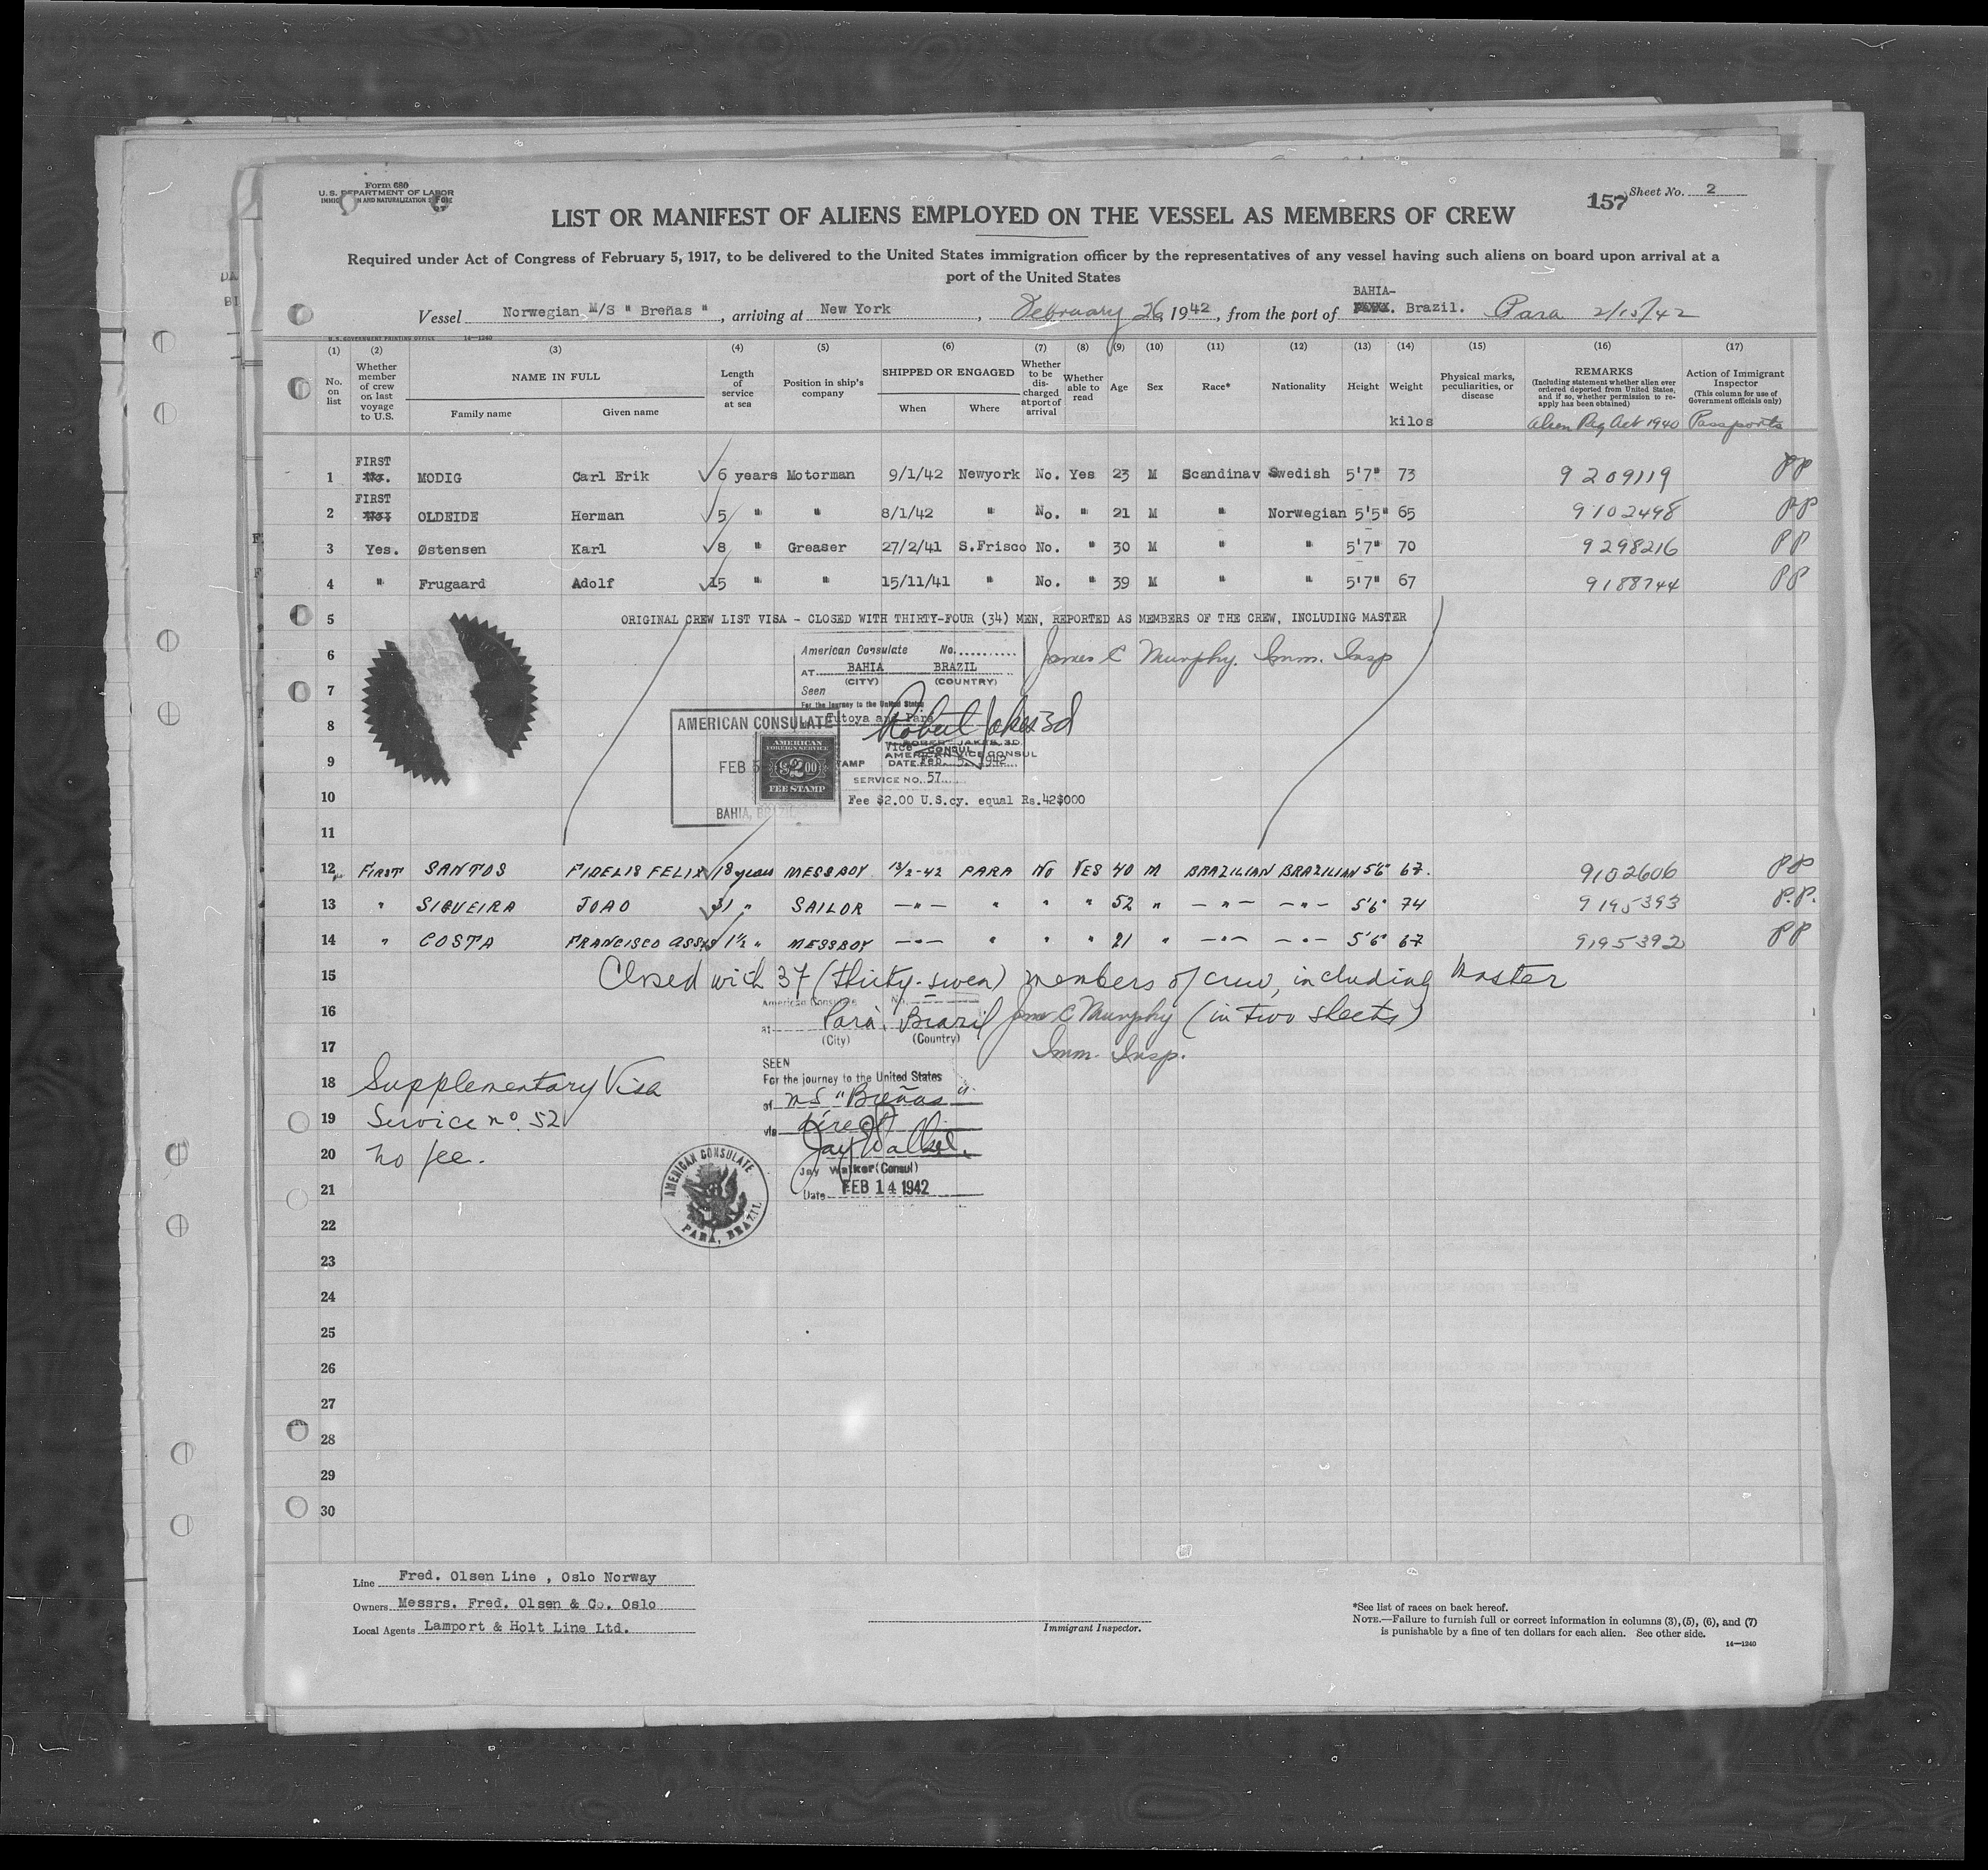 Form 680
U. S. DEPARTMENT OF LABOR
IMMIGRATION AND NATURALIZATION
157 Sheet No. 2
LIST OR MANIFEST OF ALIENS EMPLOYED ON THE VESSEL AS MEMBERS OF CREW
Required under Act of Congress of February 5, 1917, to be delivered to the United States immigration officer by the representatives of any vessel having such aliens on board upon arrival at a
port of the United States
BAHIA-
Vessel Norwegian M/S " Breñas " , arriving at New York , February 26, 1942, from the port of Brazil. Para 2/15/42
U.S. GOVERNMENT PRINTING OFFICE 14—1240
(1) (2) (3) (4) (5) (6) (7) (8) (9) (10) (11) (12) (13) (14) (15) (16) (17)
No. on list
Whether member of crew on last voyage to U.S.
NAME IN FULL
Family name Given name
Length of service at sea
Position in ship's company
SHIPPED OR ENGAGED
When Where
Whether to be discharged at port of arrival
Whether able to read
Age Sex Race* Nationality Height Weight
kilos
Physical marks, peculiarities, or disease
REMARKS
(Including statement whether alien ever ordered deported from United States, and if so, whether permission to reapply has been obtained)
Alien Reg Act 1940
Action of Immigrant Inspector
(This column for use of Government officials only)
Passports
FIRST
1 No. MODIG Carl Erik 6 years Motorman 9/1/42 Newyork No. Yes 23 M Scandinav Swedish 5'7" 73 9209119 PP
FIRST
2 No. OLDEIDE Herman 5 " " 8/1/42 " No. " 21 M " Norwegian 5'5" 65 9102498 PP
3 Yes. Østensen Karl 8 " Greaser 27/2/41 S.Frisco No. " 30 M " " 5'7" 70 9298216 PP
4 " Frugaard Adolf 15 " " 15/11/41 " No. " 39 M " " 5'7" 67 9188744 PP
5 ORIGINAL CREW LIST VISA - CLOSED WITH THIRTY-FOUR (34) MEN, REPORTED AS MEMBERS OF THE CREW, INCLUDING MASTER
6 American Consulate No. James C Murphy. Imm. Insp
AT BAHIA BRAZIL
7 (CITY) (COUNTRY)
Seen
For the journey to the United States
8 AMERICAN CONSULATE Tutoya and Para Robert Jakes 3d
ROBERT JAKES 3D.
Vice CONSUL
AMERICAN VICE CONSUL
9 FEB 5 AMERICAN FOREIGN SERVICE $2.00 FEE STAMP DATE Feb. 5, 1942
SERVICE NO. 57
10 Fee $2.00 U.S.cy. equal Rs.42$000
BAHIA, BRAZIL
11
12 FIRST SANTOS FIDELIS FELIX 18 years MESSBOY 13/2-42 PARA NO YES 40 M BRAZILIAN BRAZILIAN 5'6" 67. 9102606 PP
13 " SIQUEIRA JOAO 31 " SAILOR —"— " " " 52 " —"— —"— 5'6" 74 9195393 P.P.
14 " COSTA FRANCISCO ASSIS 1½ " MESSBOY —"— " " " 21 " —"— —"— 5'6" 67 9195392 PP
15 Closed with 37 (thirty-seven) members of crew, including Master
American Consulate No.
16 at Pará, Brazil James C Murphy (in two sheets)
(City) (Country)
17 Imm. Insp.
SEEN
18 Supplementary Visa For the journey to the United States
of MS "Breñas"
19 Service no. 52 via direct
20 no fee. Jay Walker
Jay Walker (Consul)
21 Date FEB 14 1942
AMERICAN CONSULATE PARA, BRAZIL
22
23
24
25
26
27
28
29
30
Line Fred. Olsen Line , Oslo Norway
Owners Messrs. Fred. Olsen & Co. Oslo
Local Agents Lamport & Holt Line Ltd.
Immigrant Inspector.
*See list of races on back hereof.
NOTE.—Failure to furnish full or correct information in columns (3), (5), (6), and (7)
is punishable by a fine of ten dollars for each alien. See other side.
14—1240